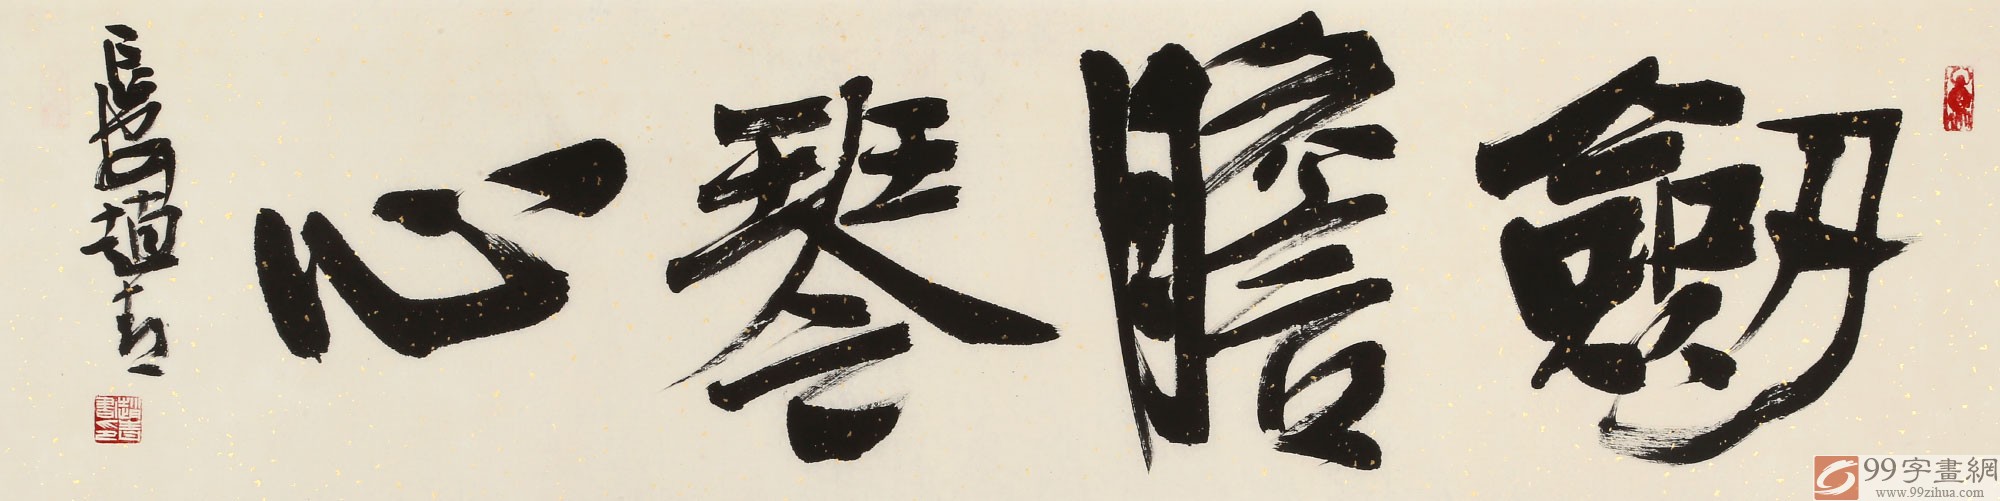 劒膽琴心
趙
99字畫網
www.99zihua.com